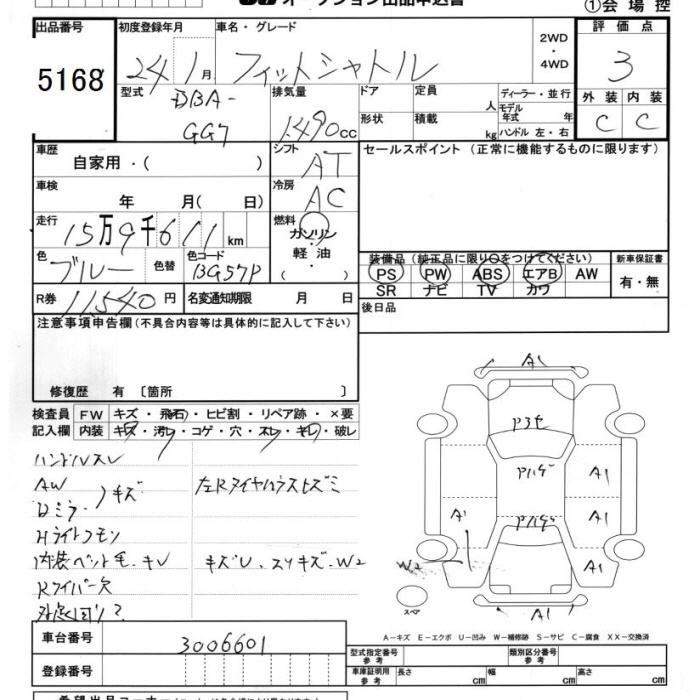 オークション出品申込書
①会場控
出品番号 初度登録年月 車名・グレード 2WD・4WD 評価点
5168 24年1月 フィットシャトル 3
型式 排気量 ドア 定員 人 ディーラー・並行
DBA-GG7 1490cc 形状 積載 kg モデル年式 年式 ハンドル 左・右
外装 内装
C C
車歴 シフト セールスポイント(正常に機能するものに限ります)
自家用・( ) AT
車検 冷房
年 月( 日) AC
走行 燃料
15万9千611km ガソリン・軽油・( )
色 色替 色コード
ブルー BG57P
装備品(純正品に限り○をつけてください) 新車保証書
PS PW ABS エアB AW 有・無
SR ナビ TV カワ
R券 11540円 名変通知期限 月 日 後日品
注意事項申告欄(不具合内容等は具体的に記入して下さい)
修復歴 有〔箇所 〕
検査員記入欄 FW キズ・飛石・ヒビ割・リペア跡・×要
内装 キズ・汚レ・コゲ・穴・スレ・キレ・破レ
ハンドルスレ
AW
Dミラー キズ 左Rタイヤハウスヒズミ
Hライトクモリ
内装ペット毛・キレ キズU、スリキズ、W2
Rワイパー欠
A1
Pハゲ A1
A1 Pハゲ
W2 A1
スペア A1
A-キズ E-エクボ U-凹み W-補修跡 S-サビ C-腐食 XX-交換済
車台番号 3006601
登録番号
型式指定番号 参考 類別区分番号 参考
車庫証明用 参考 長さ cm 幅 cm 高さ cm